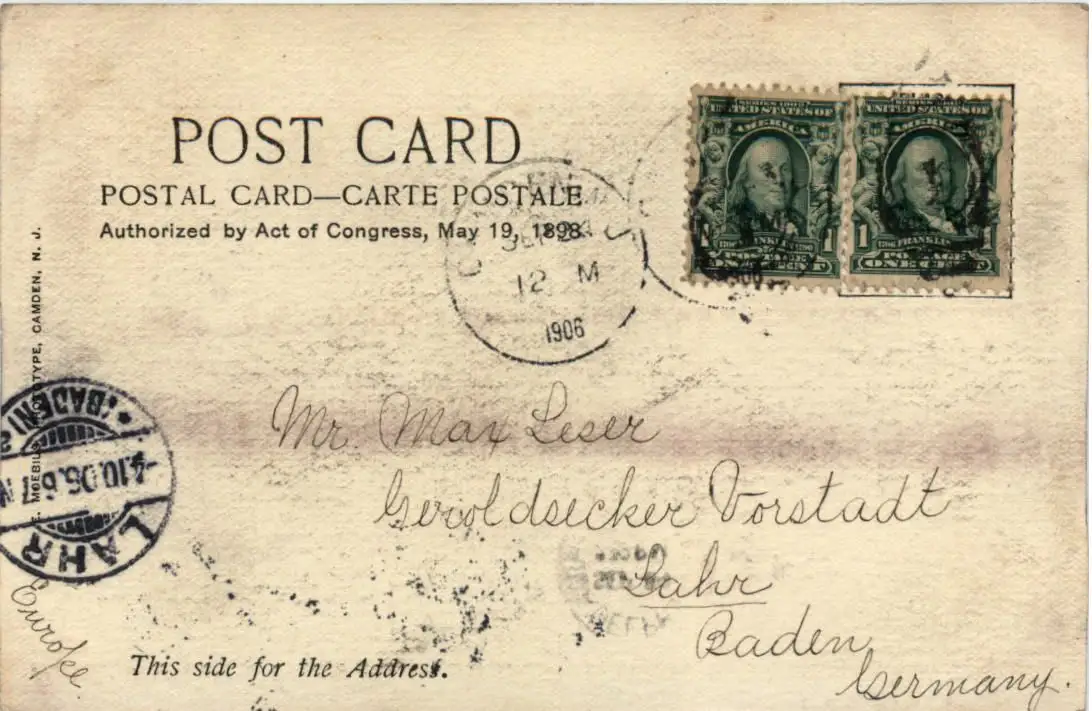 POST CARD
POSTAL CARD—CARTE POSTALE
Authorized by Act of Congress, May 19, 1898.
SERIES 1902
UNITED STATES OF
AMERICA
1 FRANKLIN 1
POSTAGE
ONE CENT
SERIES 1902
UNITED STATES OF
AMERICA
1 1706 FRANKLIN 1790 1
POSTAGE
ONE CENT
12 M
1906
MOEBIUS CAMDEN, N. J.
*(BADEN)
4.10.06.6-7N
LAHR
Mr. Max Leser
Geroldsecker Vorstadt
Lahr
Baden
Germany.
Europe
This side for the Address.